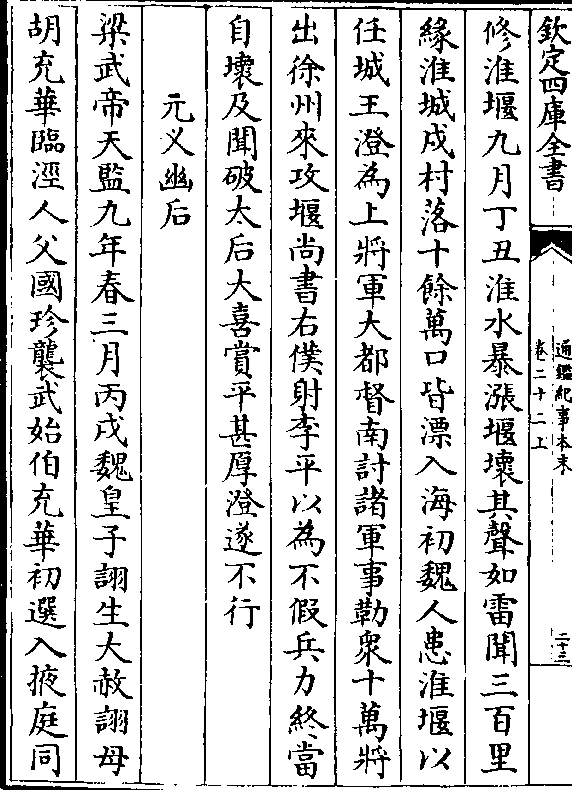 欽定四庫全書
通鑑紀事本末
卷二十二上
二十三
修淮堰九月丁丑淮水暴漲堰壞其聲如雷聞三百里
緣淮城戍村落十餘萬口皆漂入海初魏人患淮堰以
任城王澄為上將軍大都督南討諸軍事勒衆十萬將
出徐州來攻堰尚書右僕射李平以為不假兵力終當
自壞及聞破太后大喜賞平甚厚澄遂不行
元义幽后
梁武帝天監九年春三月丙戌魏皇子詡生大赦詡母
胡充華臨涇人父國珍襲武始伯充華初選入掖庭同